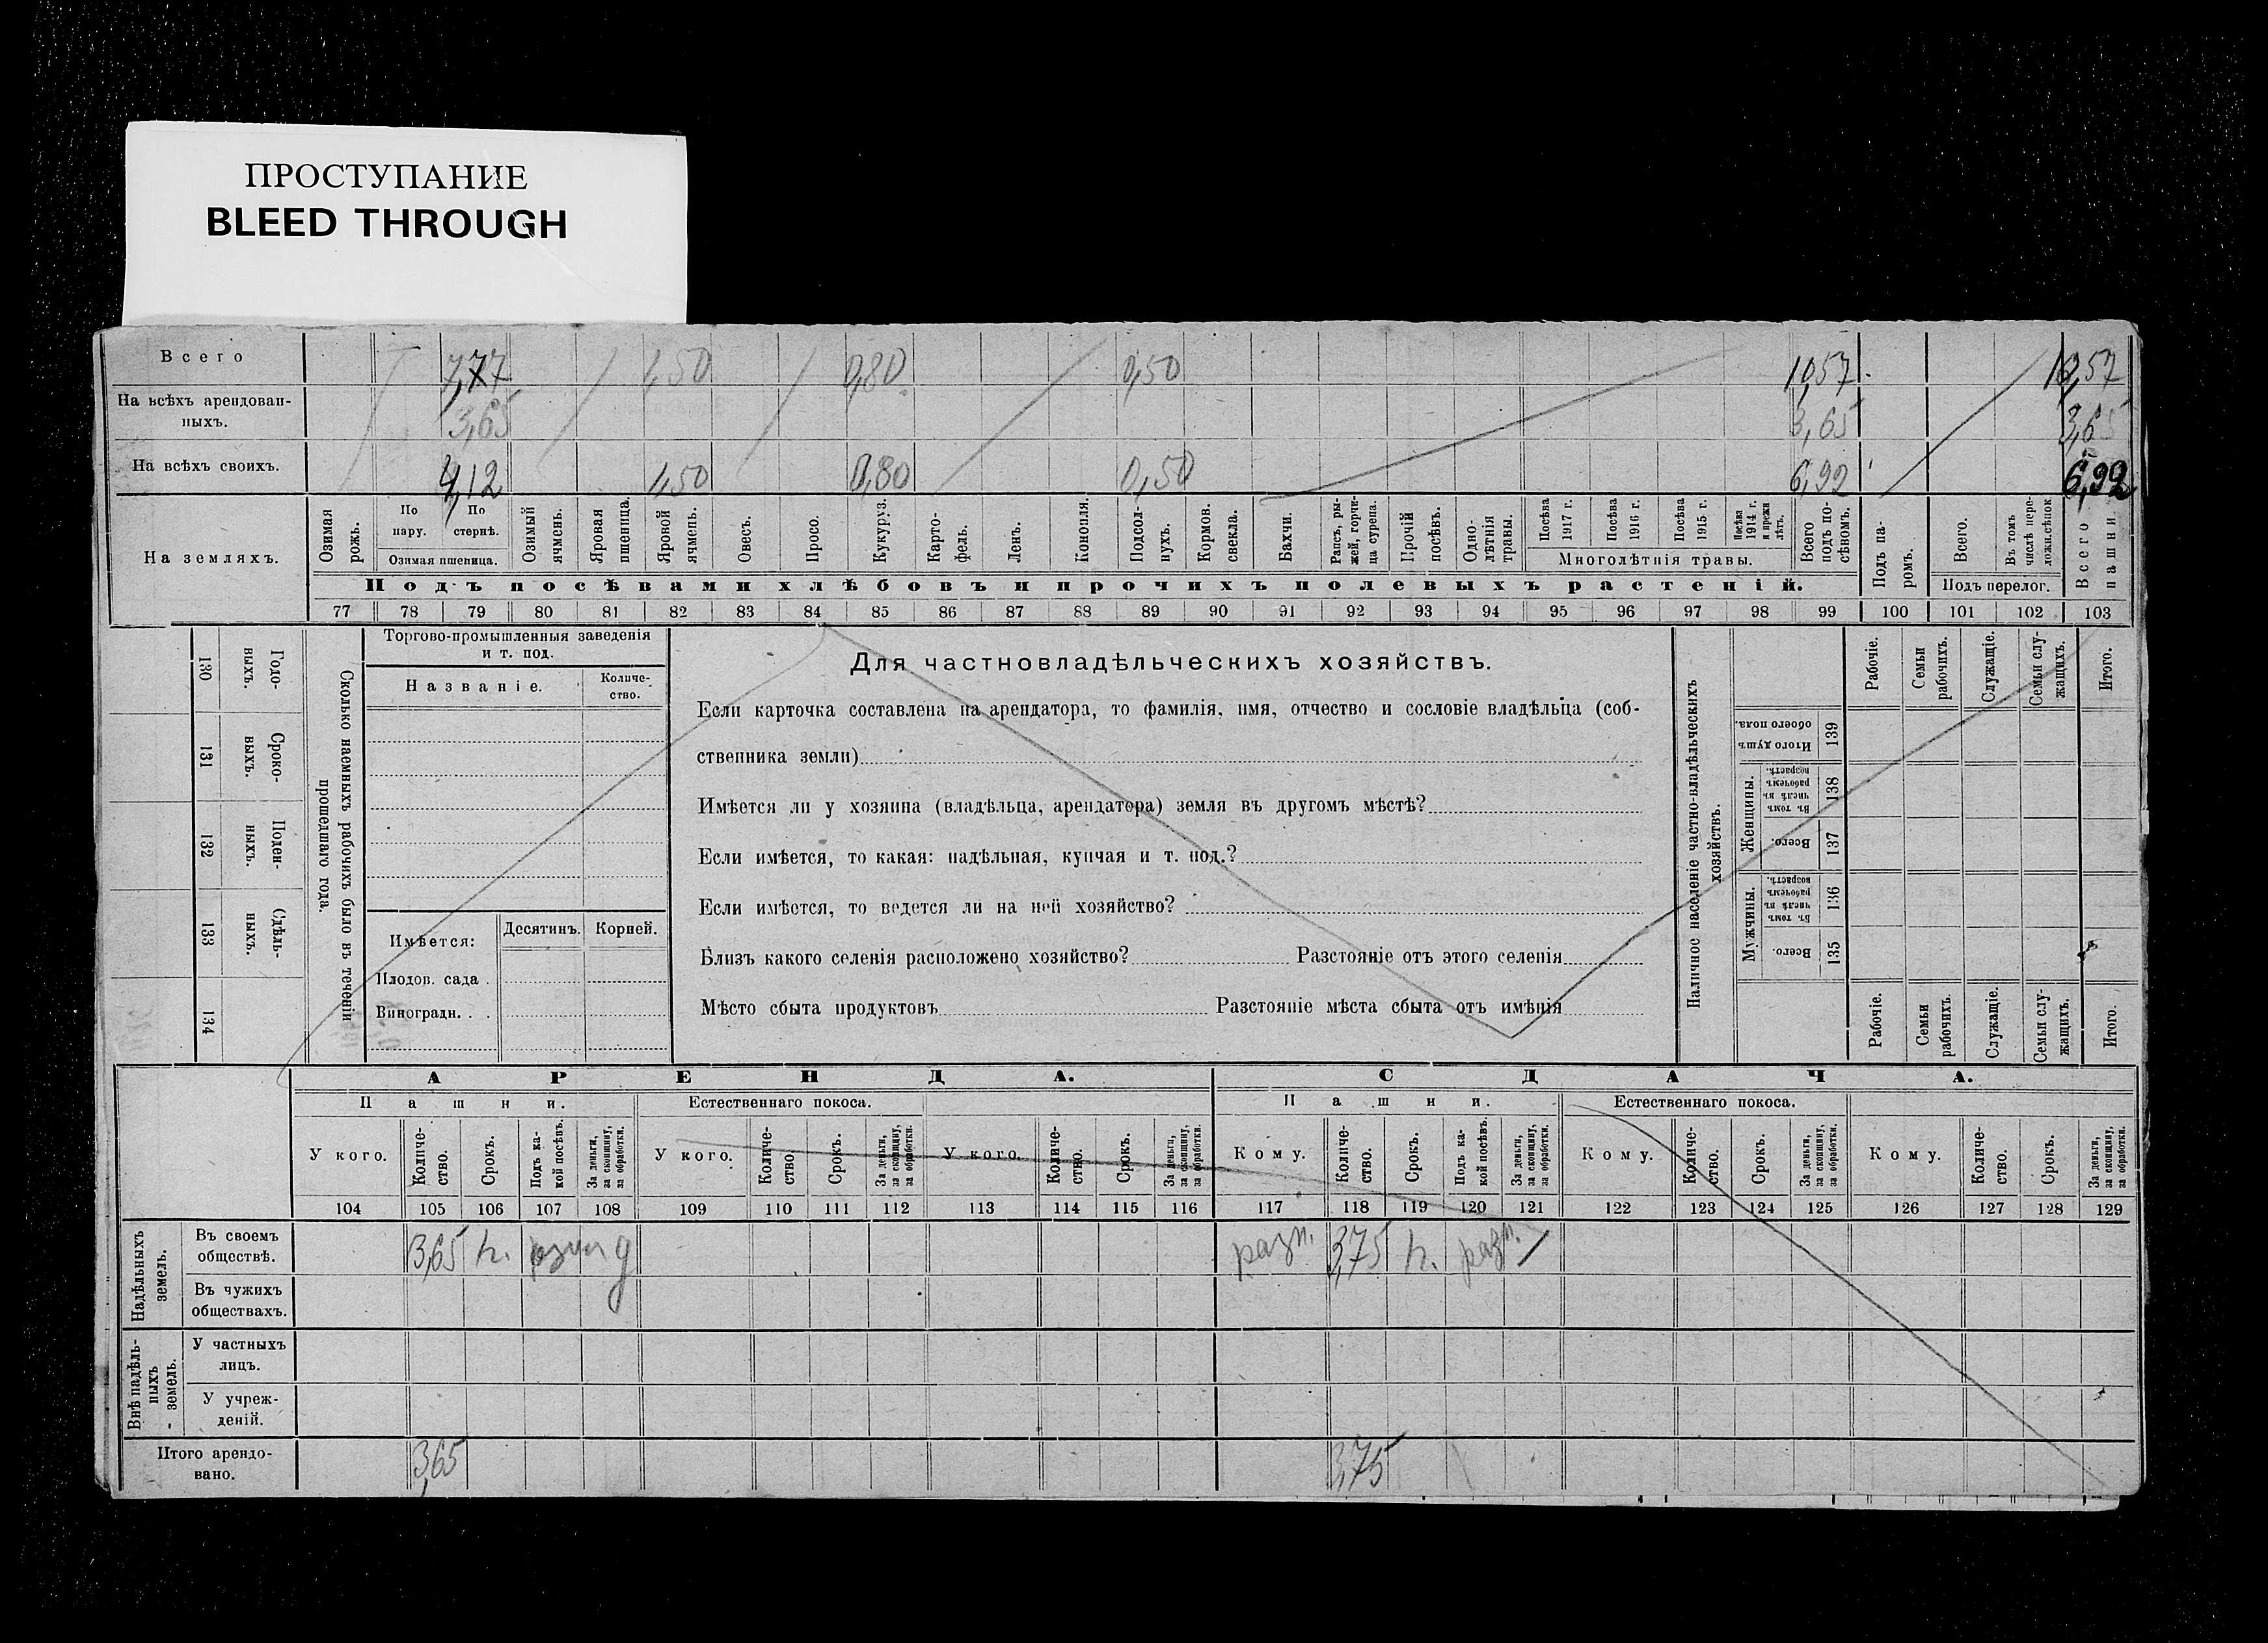 ПРОСТУПАНИЕ
BLEED THROUGH
Всего
7,77 1,50 0,80 0,50 10,57 10,57
На всѣхъ арендован-
ныхъ.
3,65 3,65 3,65
На всѣхъ своихъ.
4,12 1,50 0,80 0,50 6,92 6,92
На земляхъ.
Озимая
рожь.
По
пару.
По
стернѣ.
Озимая пшеница.
Озимый
ячмень.
Яровая
пшеница.
Яровой
ячмень.
Овесъ.
Просо.
Кукуруз.
Карто-
фель.
Ленъ.
Конопля.
Подсол-
нухъ.
Кормов.
свекла.
Бахчи.
Рапсъ, ры-
жей, горчи-
ца сурепа.
Прочій
посѣвъ.
Одно-
лѣтнія
травы.
Посѣва
1917 г.
Посѣва
1916 г.
Посѣва
1915 г.
Посѣва
1914 г.
и прежн
лѣтъ.
Многолѣтнія травы.
Всего
подъ по-
сѣвомъ.
Подъ па-
ромъ.
Всего.
Въ томъ
числѣ пере-
ложн.сѣнок
Подъ перелог.
Всего
пашни.
Подъ посѣвами хлѣбовъ и прочихъ полевыхъ растеній.
77 78 79 80 81 82 83 84 85 86 87 88 89 90 91 92 93 94 95 96 97 98 99 100 101 102 103
130
Годо-
ныхъ.
131
Сроко-
ныхъ.
132
Поден-
ныхъ.
133
Сдѣль-
ныхъ.
134
Сколько наемныхъ рабочихъ было въ теченіи
прошедшаго года.
Торгово-промышленныя заведенія
и т. под.
Названіе.
Количе-
ство.
Имѣется:
Десятинъ.
Корней.
Плодов. сада .
Виноградн. . .
Для частновладѣльческихъ хозяйствъ.
Если карточка составлена на арендатора, то фамилія, имя, отчество и сословіе владѣльца (соб-
ственника земли)
Имѣется ли у хозяина (владѣльца, арендатора) земля въ другомъ мѣстѣ?
Если имѣется, то какая: надѣльная, купчая и т. под.?
Если имѣется, то ведется ли на ней хозяйство?
Близъ какого селенія расположено хозяйство? Разстояніе отъ этого селенія
Мѣсто сбыта продуктовъ Разстояніе мѣста сбыта отъ имѣнія
Наличное населеніе частно-владѣльческихъ
хозяйствъ.
Рабочіе.
Семьи
рабочихъ.
Служащіе.
Семьи слу-
жащихъ.
Итого.
Итого душъ
обоего пола.
139
Женщины.
Въ томъ
числѣ въ
рабочемъ
возрастѣ.
138
Всего.
137
Мужчины.
Въ томъ
числѣ въ
рабочемъ
возрастѣ.
136
Всего.
135
Рабочіе.
Семьи
рабочихъ.
Служащіе.
Семьи слу-
жащихъ.
Итого.
АРЕНДА.
СДАЧА.
Пашни.
Естественнаго покоса.
Пашни.
Естественнаго покоса.
У кого.
Количе-
ство.
Срокъ.
Подъ ка-
кой посѣвъ.
За деньги,
за скопщину,
за обработки.
У кого.
Количе-
ство.
Срокъ.
За деньги,
за скопщину,
за обработки.
У кого.
Количе-
ство.
Срокъ.
За деньги,
за скопщину,
за обработки.
Кому.
Количе-
ство.
Срокъ.
Подъ ка-
кой посѣвъ.
За деньги,
за скопщину,
за обработки.
Кому.
Количе-
ство.
Срокъ.
За деньги,
за скопщину,
за обработки.
Кому.
Количе-
ство.
Срокъ.
За деньги,
за скопщину,
за обработки.
104 105 106 107 108 109 110 111 112 113 114 115 116 117 118 119 120 121 122 123 124 125 126 127 128 129
Надѣльныхъ
земель.
Въ своемъ
обществѣ.
3,65 разн. 3,75 разн.
Въ чужихъ
обществахъ.
Внѣ надѣль-
ныхъ
земель.
У частныхъ
лицъ.
У учреж-
деній.
Итого арендо-
вано.
3,65 3,75